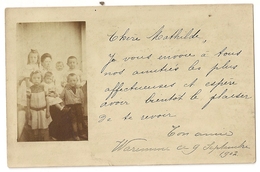 Chère Mathilde,
Je vous envoie à tous
nos amitiés les plus
affectueuses et espère
avoir bientôt le plaisir
de te revoir.
Ton amie
Waremme le 9 Septembre
1902